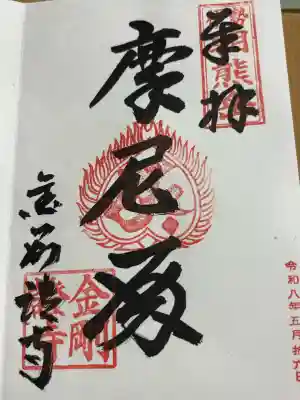 奉拝
摩尼殿
金剛證寺
金剛
證寺
令和八年五月拾六日